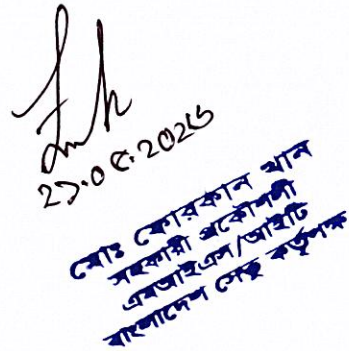 ২১.০৫.২০২৬
মোঃ ফোরকান খান
সহকারী প্রকৌশলী
এমআইএস/আইটি
বাংলাদেশ সেতু কর্তৃপক্ষ